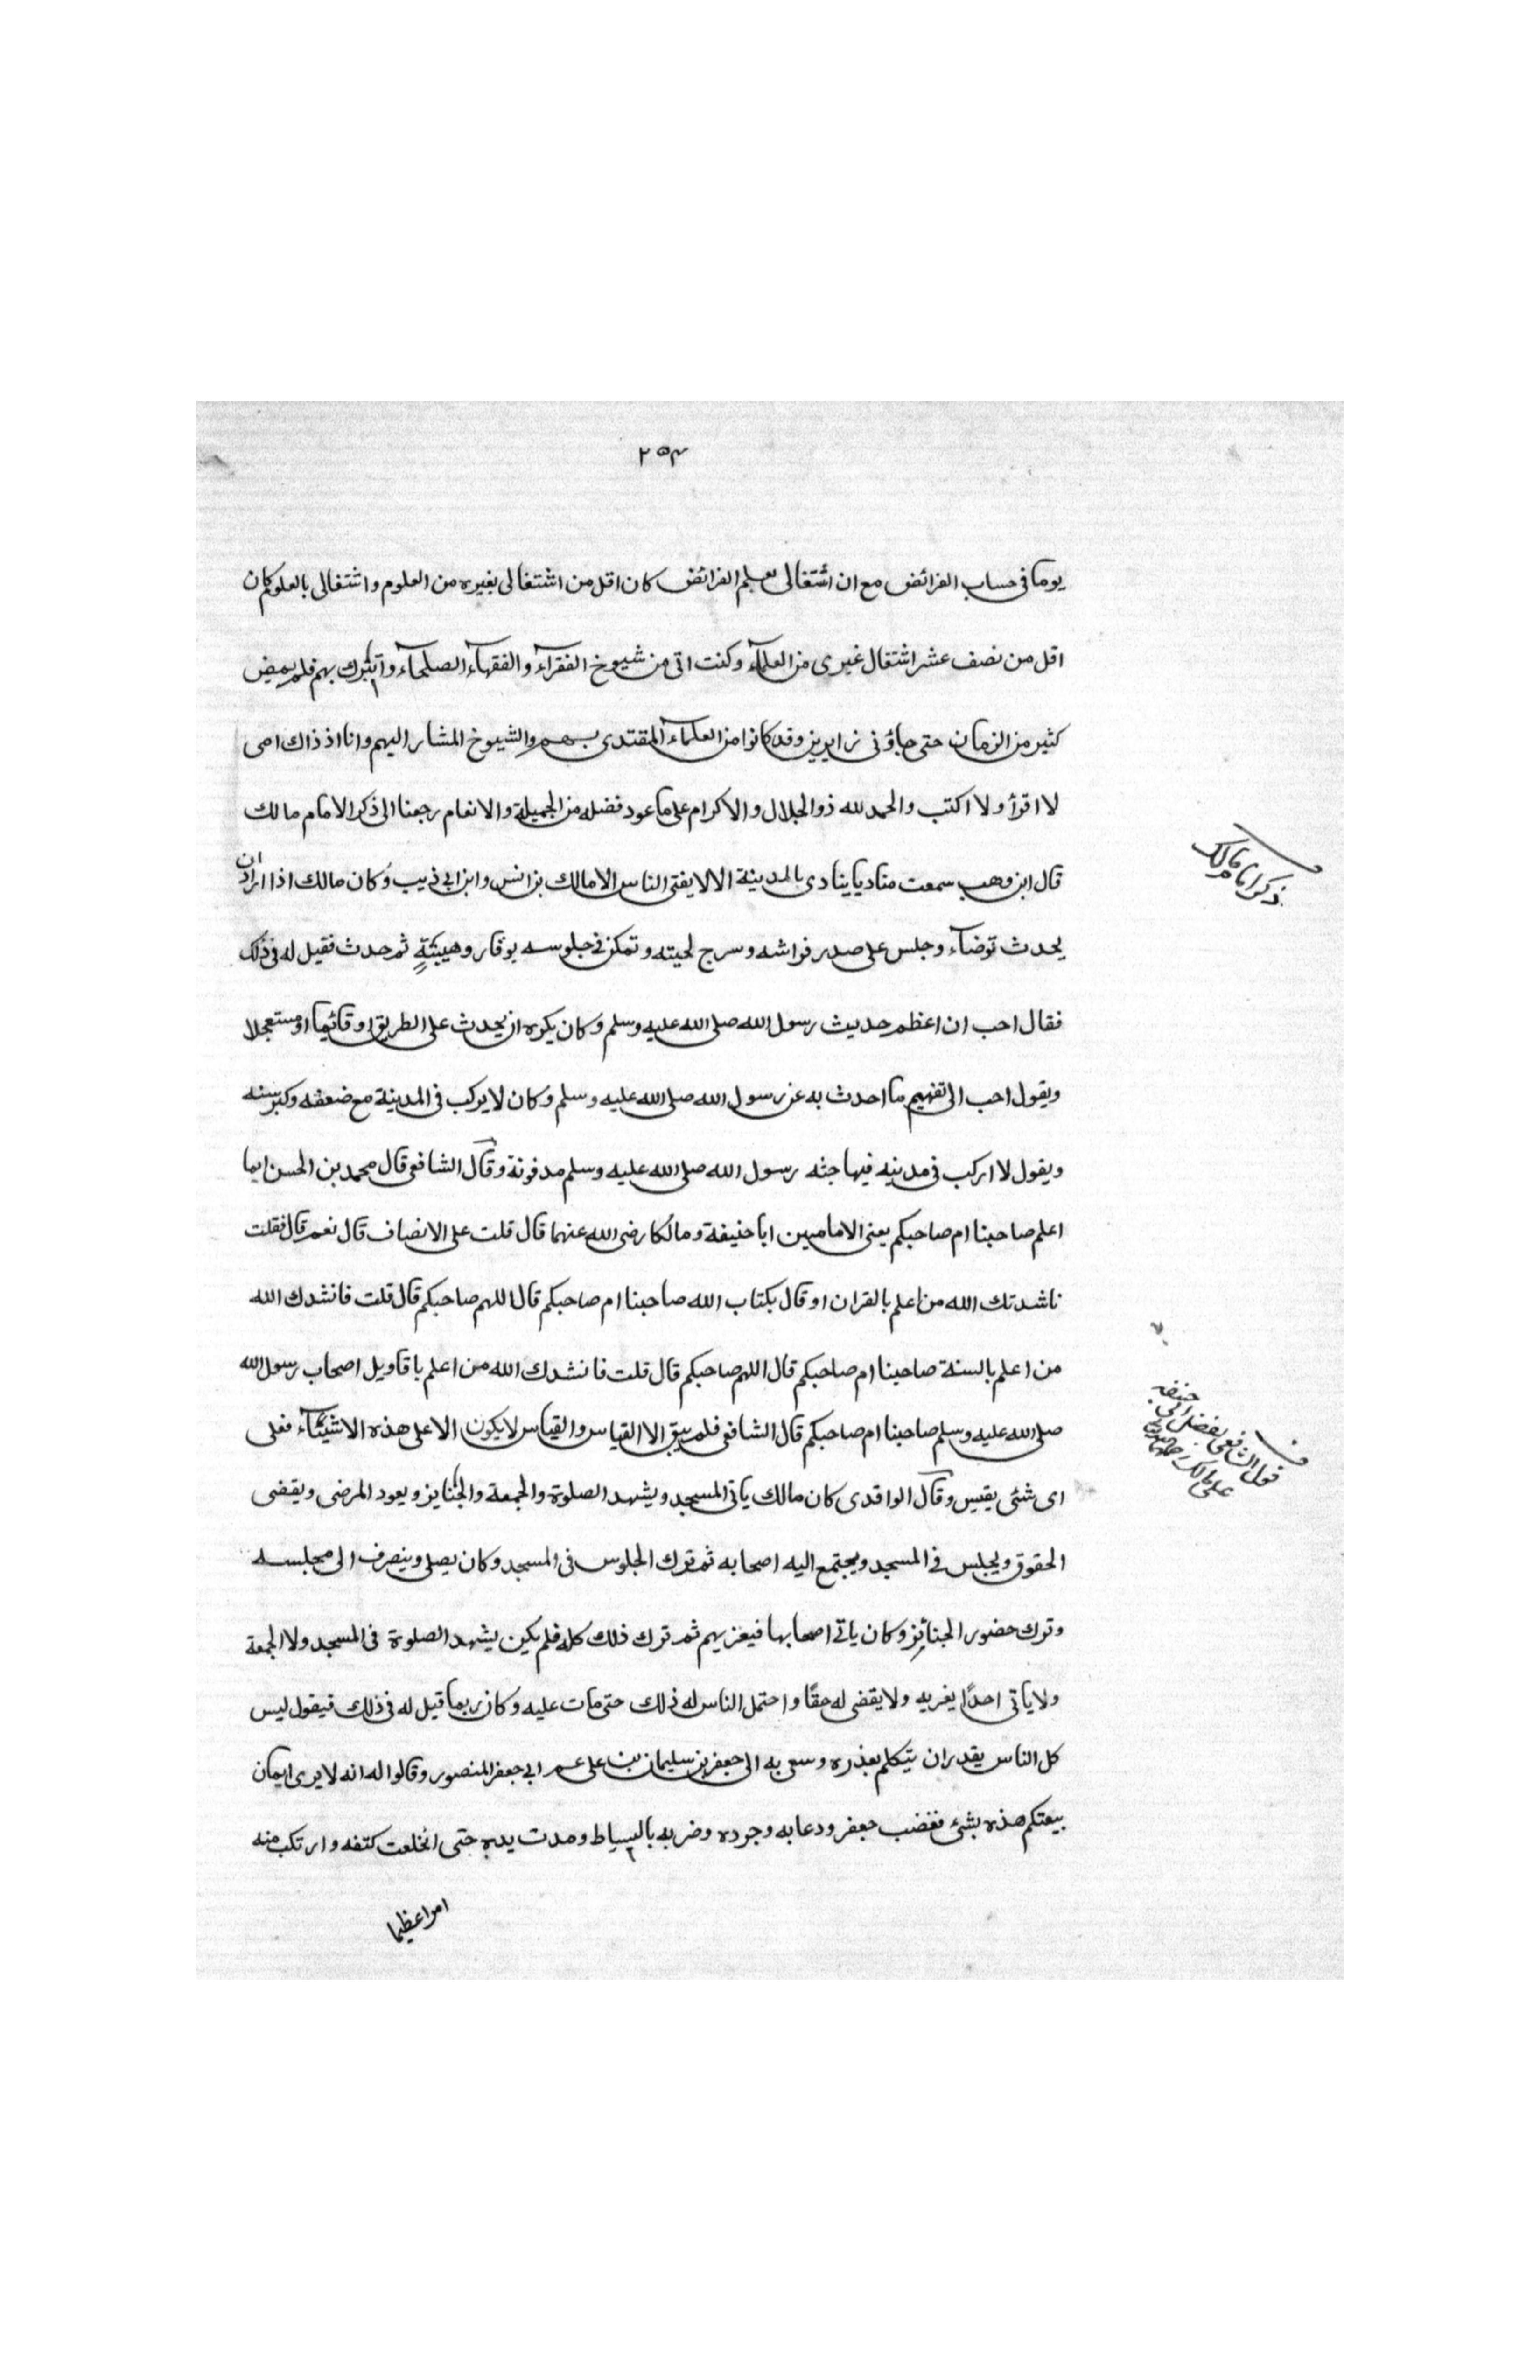 ٢٥٣
يوما فى حساب الفرائض مع ان اشتغالى بعلم الفرائض كان اقل من اشتغالى بغيره من العلوم واشتغالى بالعلوم كان
اقل من نصف عشر اشتغال غيرى من العلمآء وكنت اتى من شيوخ الفقرآء والفقهآء الصلحآء واتبرك بهم فلم يمض
كثير من الزمان حتى جاؤنى زايرين وقد كانوا من العلمآء المقتدى بهم والشيوخ المشار اليهم وانا اذ ذاك امى
لا اقرأ ولا اكتب والحمد لله ذو الجلال والاكرام على ما عود فضله من الجميلة والانعام رجعنا الى ذكر الامام مالك
قال ابن وهب سمعت مناديا ينادى بالمدينة الا لا يفتى الناس الا مالك بن انس وابن ابى ذيب وكان مالك اذا اراد ان
يحدث توضآء وجلس على صدر فراشه وسرج لحيته وتمكن فى جلوسه بوقار وهيبةٍ ثم حدث فقيل له فى ذلك
فقال احب ان اعظم حديث رسول الله صلى الله عليه وسلم وكان يكره ان يحدث على الطريق او قائما او مستعجلا
ويقول احب ان تفهيم ما احدث به عن رسول الله صلى الله عليه وسلم وكان لا يركب فى المدينة مع ضعفه وكبر سنه
ويقول لا اركب فى مدينه فيها جثه رسول الله صلى الله عليه وسلم مدفونة وقال الشافعى قال محمد بن الحسن ايما
اعلم صاحبنا ام صاحبكم يعنى الامامين ابا حنيفة ومالكا رضى الله عنهما قال قلت على الانصاف قال نعم قال فقلت
ناشدتك الله من اعلم بالقران او قال بكتاب الله صاحبنا ام صاحبكم قال اللهم صاحبكم قال قلت فانشدك الله
من اعلم بالسنة صاحبنا ام صاحبكم قال اللهم صاحبكم قال قلت فانشدك الله من اعلم باقاويل اصحاب رسول الله
صلى الله عليه وسلم صاحبنا ام صاحبكم قال الشافعى فلم يبق الا القياس والقياس لا يكون الا على هذه الاشيآء فعلى
اى شئى يقيس وقال الواقدى كان مالك ياتى المسجد ويشهد الصلوة والجمعة والجنايز ويعود المرضى ويقضى
الحقوق ويجلس فى المسجد ويجتمع اليه اصحابه ثم ترك الجلوس فى المسجد وكان يصلى وينصرف الى مجلسه
وترك حضور الجنائز وكان ياتى اصحابها فيعزيهم ثم ترك ذلك كله فلم يكن يشهد الصلوة فى المسجد ولا الجمعة
ولا ياتى احدًا يغريه ولا يقضى له حقًا واحتمل الناس له ذلك حتى مات عليه وكان ربما قيل له فى ذلك فيقول ليس
كل الناس يقدر ان يتكلم بعذره وسعى به الى جعفر بن سليمان بن على عم ابى جعفر المنصور وقالوا له انه لا يرى ايمان
بيعتكم هذه بشئ فغضب جعفر ودعا به وجرده وضربه بالسياط ومدت يده حتى انخلعت كتفه وارتكب منه
امرا عظيما
ذكر امام مالك
قول الشافعى بفضل ابى حنيفه
على مالك